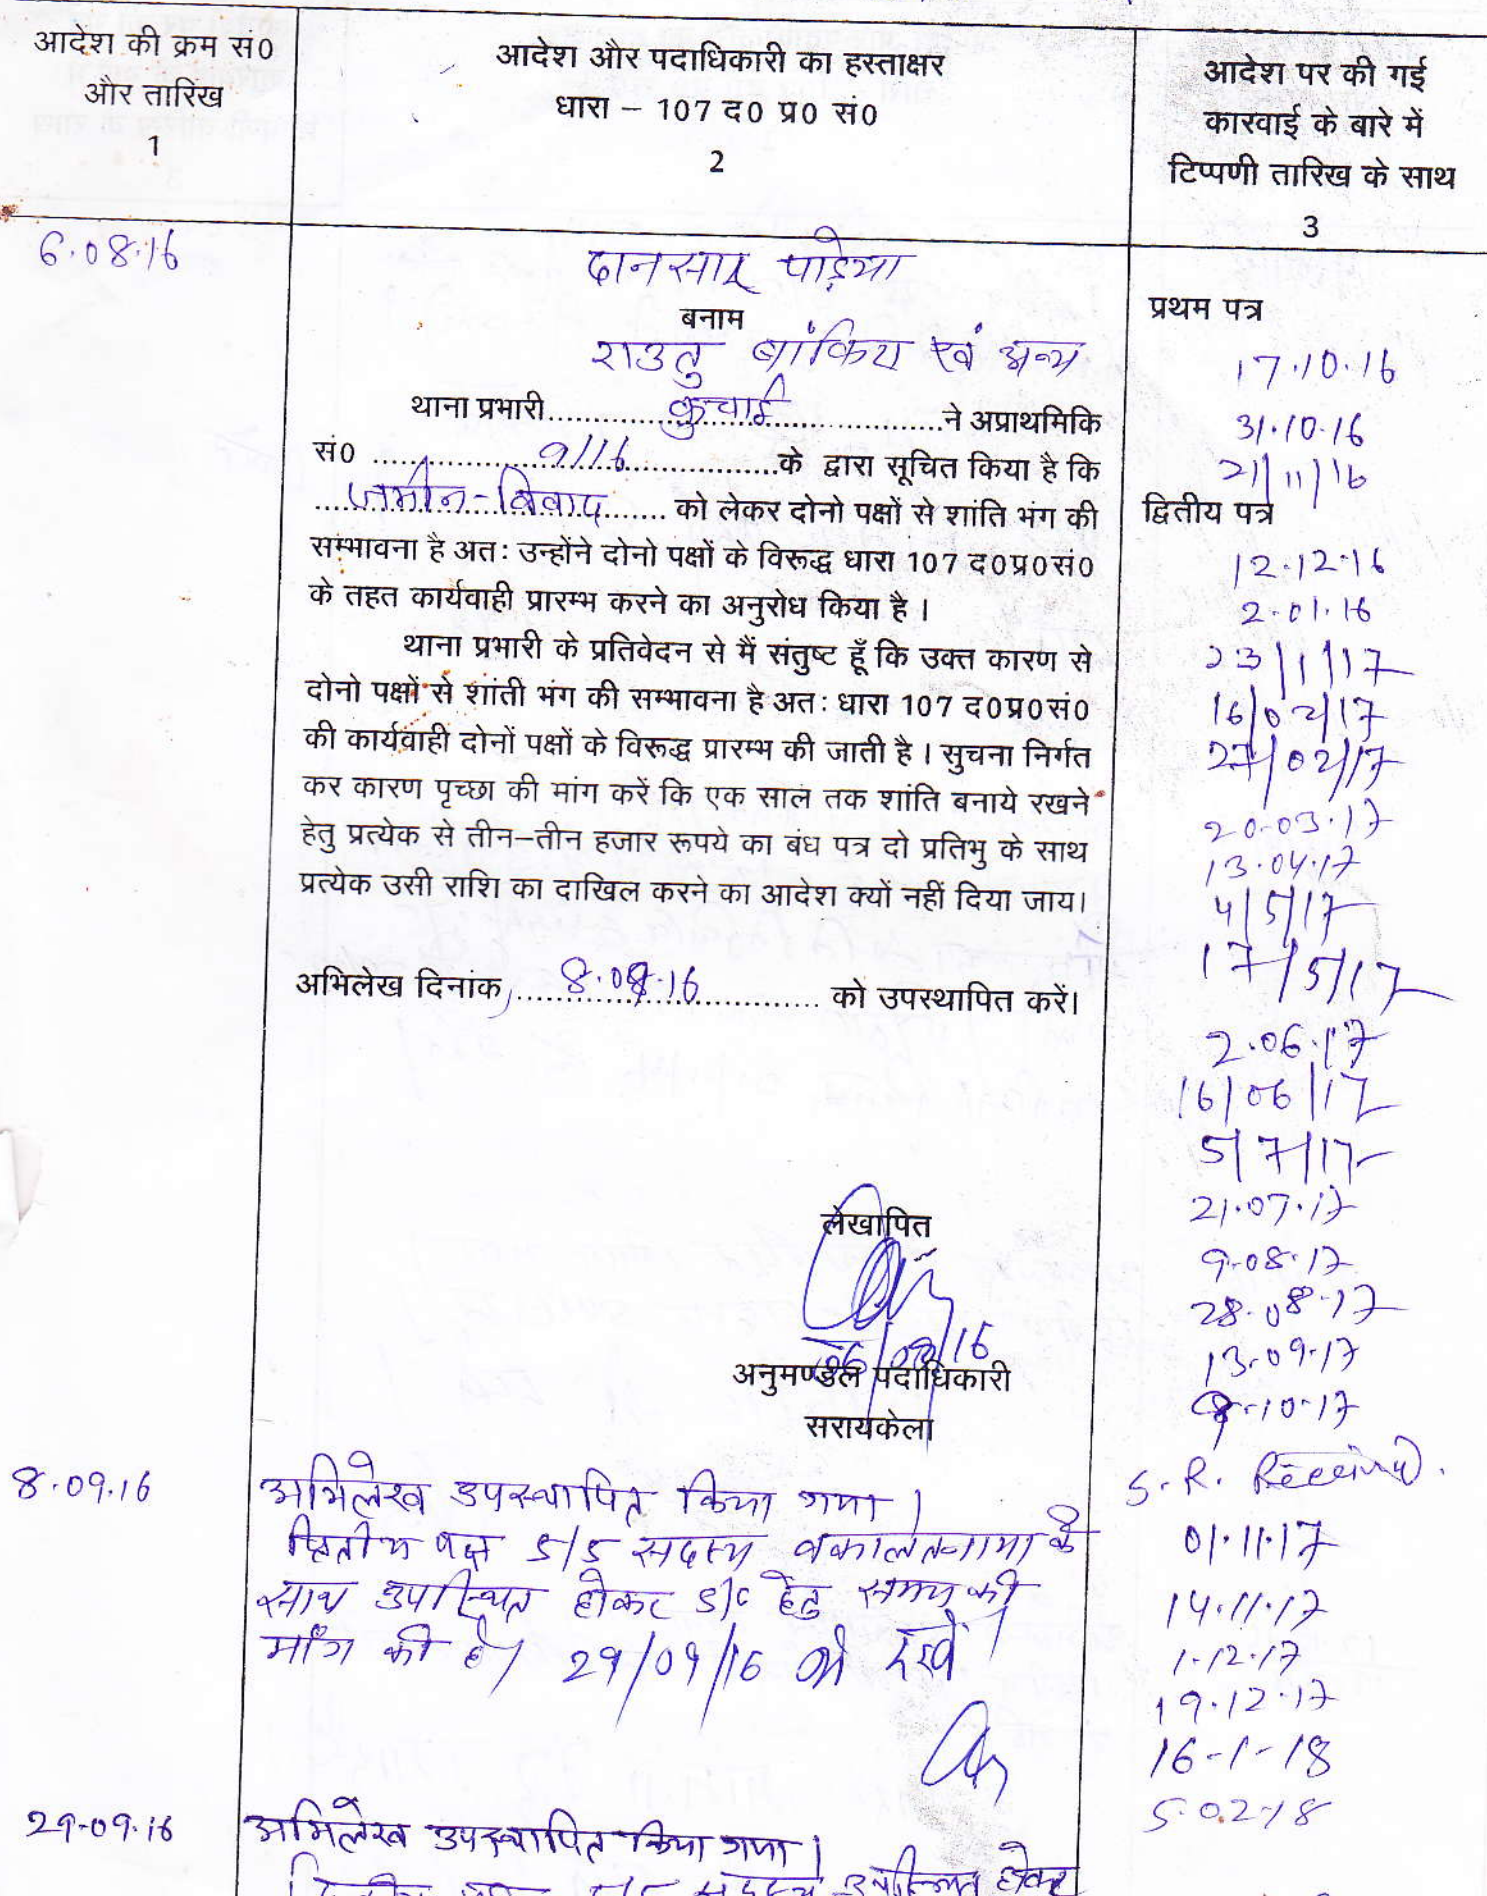 आदेश की क्रम सं0
और तारिख
1
आदेश और पदाधिकारी का हस्ताक्षर
धारा – 107 द0 प्र0 सं0
2
आदेश पर की गई
कारवाई के बारे में
टिप्पणी तारिख के साथ
3
6.08.16
दानसार पाड़ेया
बनाम
राउतु बांकिरा एवं अन्य
थाना प्रभारी.........कुचाई.........ने अप्राथमिकि
सं0 .........9/16.........के द्वारा सूचित किया है कि
....जमीन-विवाद....... को लेकर दोनो पक्षों से शांति भंग की
सम्भावना है अतः उन्होंने दोनो पक्षों के विरूद्ध धारा 107 द0प्र0सं0
के तहत कार्यवाही प्रारम्भ करने का अनुरोध किया है ।
थाना प्रभारी के प्रतिवेदन से मैं संतुष्ट हूँ कि उक्त कारण से
दोनो पक्षों से शांती भंग की सम्भावना है अतः धारा 107 द0प्र0सं0
की कार्यवाही दोनों पक्षों के विरूद्ध प्रारम्भ की जाती है । सुचना निर्गत
कर कारण पृच्छा की मांग करें कि एक साल तक शांति बनाये रखने
हेतु प्रत्येक से तीन–तीन हजार रूपये का बंध पत्र दो प्रतिभु के साथ
प्रत्येक उसी राशि का दाखिल करने का आदेश क्यों नहीं दिया जाय।
अभिलेख दिनांक.......8.09.16........... को उपस्थापित करें।
लेखापित
अनुमण्डल पदाधिकारी
सरायकेला
8.09.16
अभिलेख उपस्थापित किया गया ।
द्वितीय पक्ष 5/5 सदस्य वकालतनामा के
साथ उपस्थित होकर S/C हेतु समय की
माँग की है। 29/09/16 को रखें ।
29.09.16
अभिलेख उपस्थापित किया गया ।
सदस्य उपस्थित होकर
प्रथम पत्र
17.10.16
31.10.16
21/11/16
द्वितीय पत्र
12.12.16
2.01.16
23/1/17
16/02/17
27/02/17
20.03.17
13.04.17
4/5/17
17/5/17
2.06.17
16/06/17
5/7/17
21.07.17
9.08.17
28.08.17
13.09.17
9.10.17
S.R. Received.
01.11.17
14.11.17
1.12.17
19.12.17
16-1-18
5.02.18